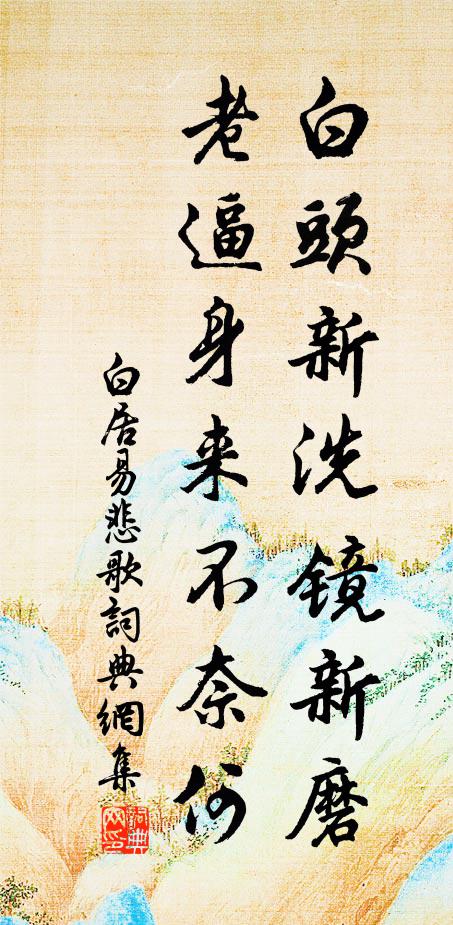 白頭新洗镜新磨
老逼身来不奈何
白居易悲歌詞典網集
詞典网印